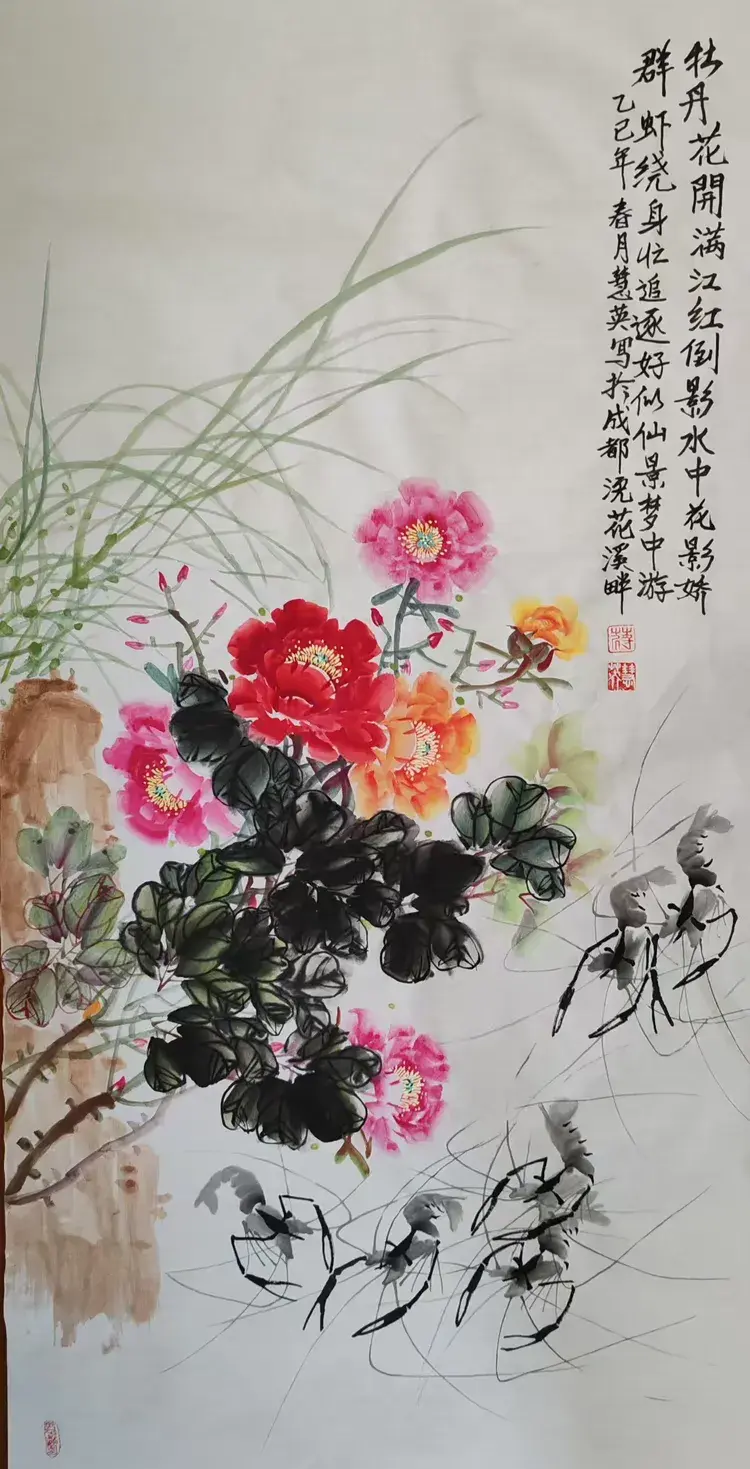 牡丹花開满江红倒影水中花影娇
群虾绕身忙追逐好似仙景梦中游
乙巳年春月慧英写於成都浣花溪畔
蒋
慧英